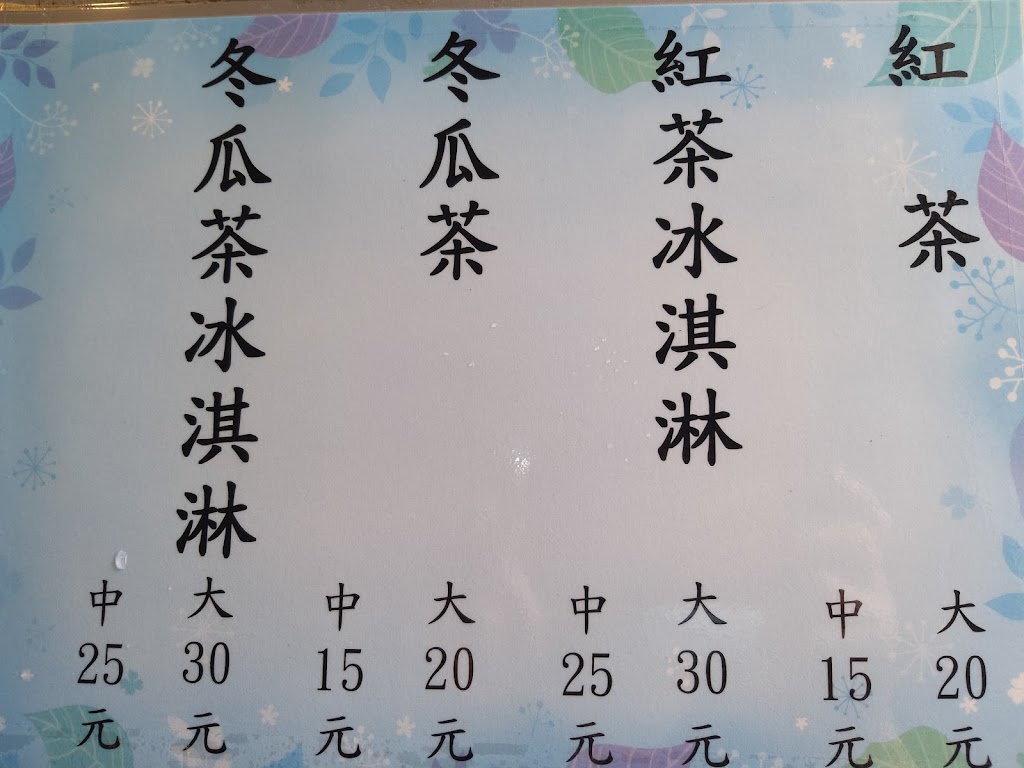 紅茶
大20元
中15元
紅茶冰淇淋
大30元
中25元
冬瓜茶
大20元
中15元
冬瓜茶冰淇淋
大30元
中25元